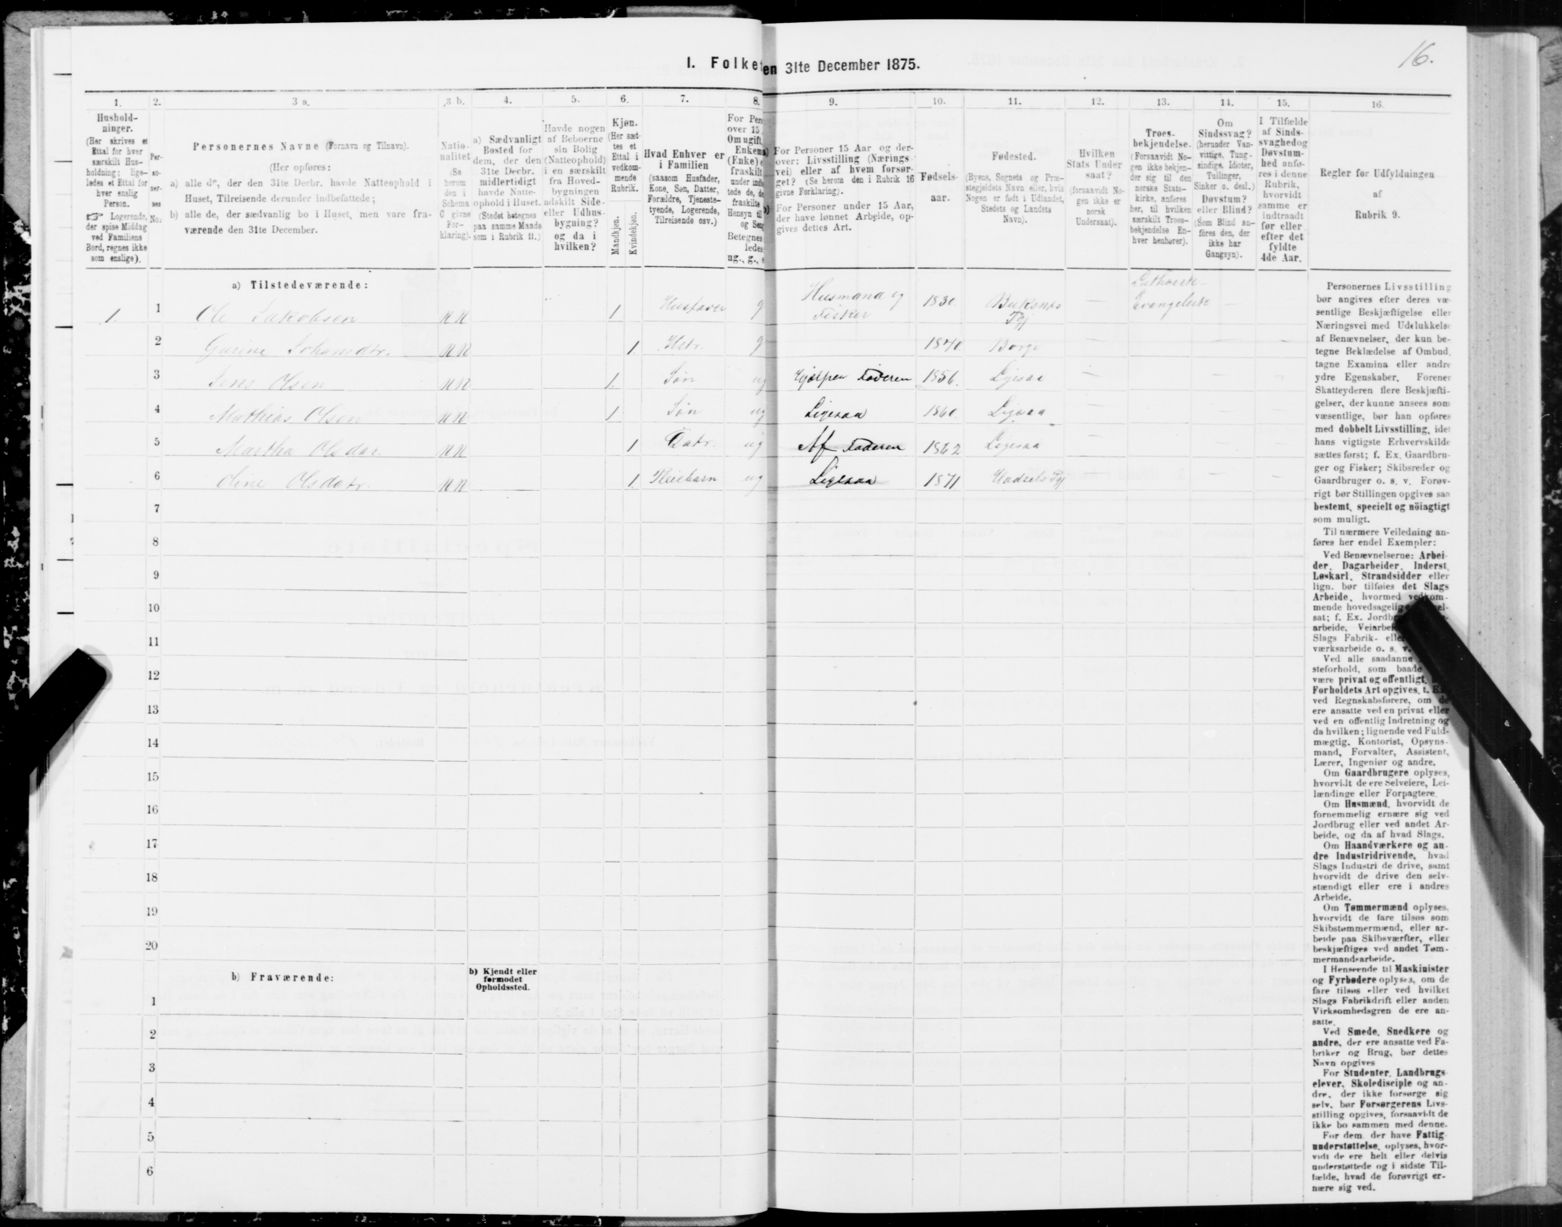 16.
I. Folke
en 31te December 1875.
1.
2.
3 a.
3 b.
4.
5.
6.
7.
8.
9.
10.
11.
12.
13.
14.
15.
16.
Hushold-
ninger.
(Her skrives et
Ettal for hver
særskilt Hus-
holdning; lige-
ledes et Ettal for
hver enslig
Person.
☞ Logerende,
der spise Middag
ved Familiens
Bord, regnes ikke
som enslige).
Per-
so-
ner-
nes
No.
Personernes Navne (Fornavn og Tilnavn).
(Her opføres:
a) alle de, der den 31te Decbr. havde Natteophold i
Huset, Tilreisende derunder indbefattede;
b) alle de, der sædvanlig bo i Huset, men vare fra-
værende den 31te December.
Natio-
nalitet
(Se
herom
den i
Schema
C givne
For-
klaring).
a) Sædvanligt
Bosted for
dem, der den
31te Decbr.
midlertidigt
havde Natte-
ophold i Huset.
(Stedet betegnes
paa samme Maade
som i Rubrik 11.)
Havde nogen
af Beboerne
sin Bolig
(Natteophold)
i en særskilt
fra Hoved-
bygningen
adskilt Side-
eller Udhus-
bygning?
og da i
hvilken?
Kjøn.
(Her sæt-
tes et
Ettal i
vedkom-
mende
Rubrik.
Mandkjøn.
Kvindekjøn.
Hvad Enhver er
i Familien
(saasom Husfader,
Kone, Søn, Datter,
Forældre, Tjeneste-
tyende, Logerende,
Tilreisende osv.)
For Per
over 15
Om ugift
Enkem
(Enke) e
fraskilt
Betegnes
ug., g., e
For Personer 15 Aar og der-
over: Livsstilling (Nærings
vei) eller af hvem forsør-
get? (Se herom den i Rubrik 16
givne Forklaring).
For Personer under 15 Aar,
der have lønnet Arbejde, op-
gives dettes Art.
Fødsels-
aar.
Fødested.
(Byens, Sognets og Præ-
stegjeldets Navn eller, hvis
Nogen er født i Udlandet,
Stedets og Landets
Navn).
Hvilken
Stats Under
saat?
(forsaavidt No-
gen ikke er
norsk
Undersaat).
Troes-
bekjendelse.
(Forsaavidt No-
gen ikke bekjen-
der sig til den
norske Stats-
kirke, anføres
her, til hvilken
særskilt Troes-
bekjendelse En-
hver henhører).
Om
Sindssvag?
(herunder Van-
vittige, Tung-
sindige, Idioter,
Tullinger,
Sinker o. desl.)
Døvstum?
eller Blind?
(Som Blind an-
føres den, der
ikke har
Gangsyn).
I Tilfælde
af Sinds-
svaghed og
Døvstum-
hed anfø-
res i denne
Rubrik,
hvorvidt
samme er
indtraadt
før eller
efter det
fyldte
4de Aar.
Regler for Udfyldningen
af
Rubrik 9.
a) Tilstedeværende:
1. 1 Ole Jakobsen NN 1 Husfader g Husmand og Fisker 1830 Buksnes Pgj — Evangelisk —
2 NN 1 Hstr. g 1840 Borge — —
3 Jens Olsen NN 1 Søn ug Hjælper Faderen 1856. Ligesaa — —
4 Mathias Olsen NN 1 Søn ug Ligesaa 1860 Ligesaa — —
5 Martha Olsdatr. NN 1 Datr. ug Af Faderen 1862 Ligesaa — —
6 Oline Olsdatr. NN 1 Pleiebarn ug Ligesaa 1871 Hadsels Pgj — —
7
8
9
10
11
12
13
14
15
16
17
18
19
20
b) Fraværende:
b) Kjendt eller
formodet
Opholdssted.
1
2
3
4
5
6
Personernes Livsstilling
bør angives efter deres væ-
sentlige Beskjæftigelse eller
Næringsvei med Udelukkelse
af Benævnelser, der kun be-
tegne Beklædelse af Ombud,
tagne Examina eller andre
ydre Egenskaber. Forener
Skatteyderen flere Beskjæfti-
gelser, der kunne ansees som
væsentlige, bør han opføres
med dobbelt Livsstilling, idet
hans vigtigste Erhvervskilde
sættes først; f. Ex. Gaardbru-
ger og Fisker; Skibsreder og
Gaardbruger o. s. v. Forøv-
rigt bør Stillingen opgives saa
bestemt, specielt og nöiagtigt
som muligt.
Til nærmere Veiledning an-
føres her endel Exempler:
Ved Benævnelserne: Arbei-
der, Dagarbeider, Inderst,
Løskarl, Strandsidder eller
lign. bør tilføies det Slags
Arbeide, hvormed vedkom-
mende hovedsagelig
sat; f. Ex. Jordb
arbeide, Veiarbe
Slags Fabrik- elle
værksarbeide o. s. v.
Ved alle saadanne
steforhold, som baade
være privat og offentligt,
Forholdets Art opgives, f. Ex.
ved Regnskabsførere, om de
ere ansatte ved en privat eller
ved en offentlig Indretning og
da hvilken; lignende ved Fuld-
mægtig, Kontorist, Opsyns-
mand, Forvalter, Assistent,
Lærer, Ingeniør og andre.
Om Gaardbrugere oplyses,
hvorvidt de ere Selveiere, Lei-
lændinge eller Forpagtere.
Om Husmænd, hvorvidt de
fornemmelig ernære sig ved
Jordbrug eller ved andet Ar-
beide, og da af hvad Slags.
Om Haandværkere og an-
dre Industridrivende, hvad
Slags Industri de drive, samt
hvorvidt de drive den selv-
stændigt eller ere i andres
Arbeide.
Om Tømmermænd oplyses,
hvorvidt de fare tilsøs som
Skibstømmermænd, eller ar-
beide paa Skibsværfter, eller
beskjæftiges ved andet Tøm-
mermandsarbeide.
I Henseende til Maskinister
og Fyrbødere oplyses, om de
fare tilsøs eller ved hvilket
Slags Fabrikdrift eller anden
Virksomhedsgren de ere an-
satte.
Ved Smede, Snedkere og
andre, der ere ansatte ved Fa-
briker og Brug, bør dettes
Navn opgives
For Studenter, Landbrugs-
elever, Skoledisciple og an-
dre, der ikke forsørge sig
selv, bør Forsørgerens Livs-
stilling opgives, forsaavidt de
ikke bo sammen med denne.
For dem, der have Fattig
understøttelse, oplyses, hvor-
vidt de ere helt eller delvis
understøttede og i sidste Til-
fælde, hvad de forøvrigt er-
nære sig ved.